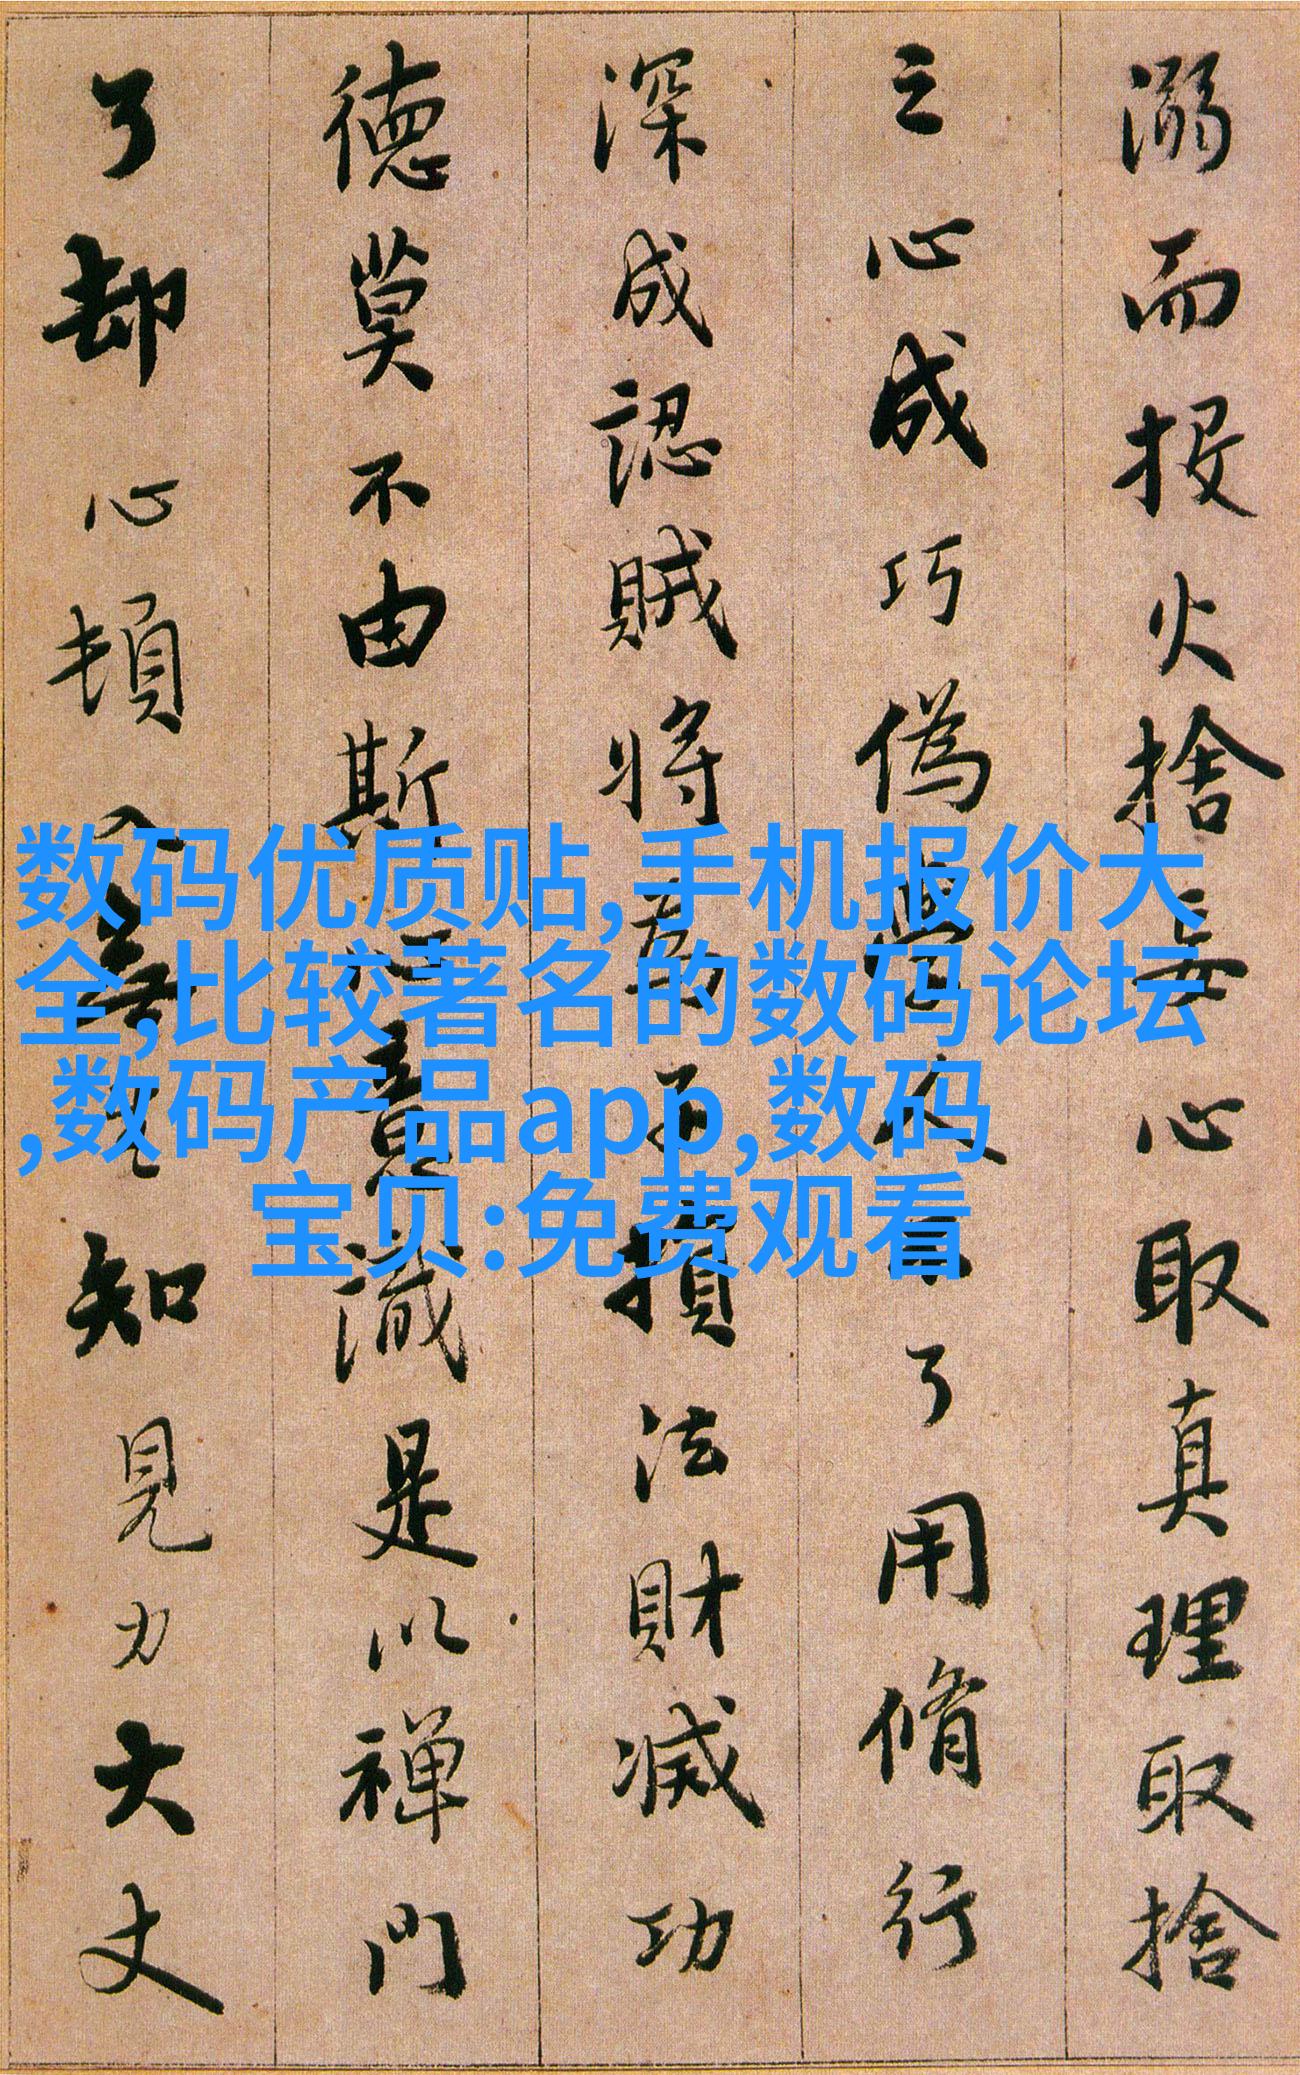 溺而投火捨妄心取真理取捨
之心成巧偽學人不了用脩行
深成認賊將為子損法財滅功
德莫不由斯心意識是以禪門
了却心頓入無生知見力大丈
数码优质贴,手机报价大
全,比较著名的数码论坛
,数码产品app,数码
宝贝:免费观看